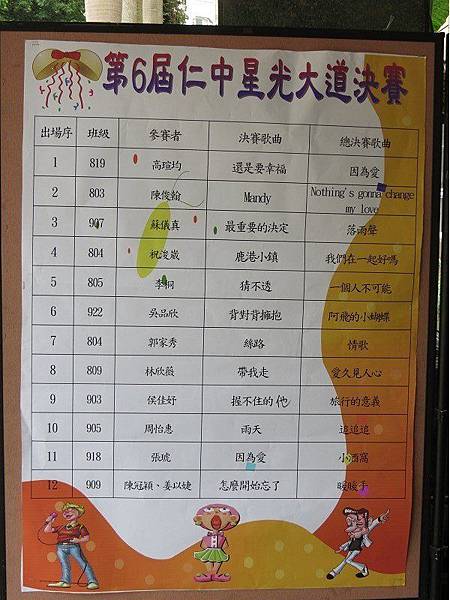 第6屆仁中星光大道決賽
出場序 班級 參賽者 決賽歌曲 總決賽歌曲
1 819 高瑄均 還是要幸福 因為愛
2 803 陳俊翰 Mandy Nothing's gonna change my love
3 907 蘇儀真 最重要的決定 落雨聲
4 804 祝浚崴 鹿港小鎮 我們在一起好嗎
5 805 李桐 猜不透 一個人不可能
6 922 吳品欣 背對背擁抱 阿飛的小蝴蝶
7 804 郭家秀 絲路 情歌
8 809 林欣薇 帶我走 愛久見人心
9 903 侯佳妤 握不住的他 旅行的意義
10 905 周怡惠 雨天 追追追
11 918 張琥 因為愛 小酒窩
12 909 陳冠穎、姜以婕 怎麼開始忘了 暖暖手